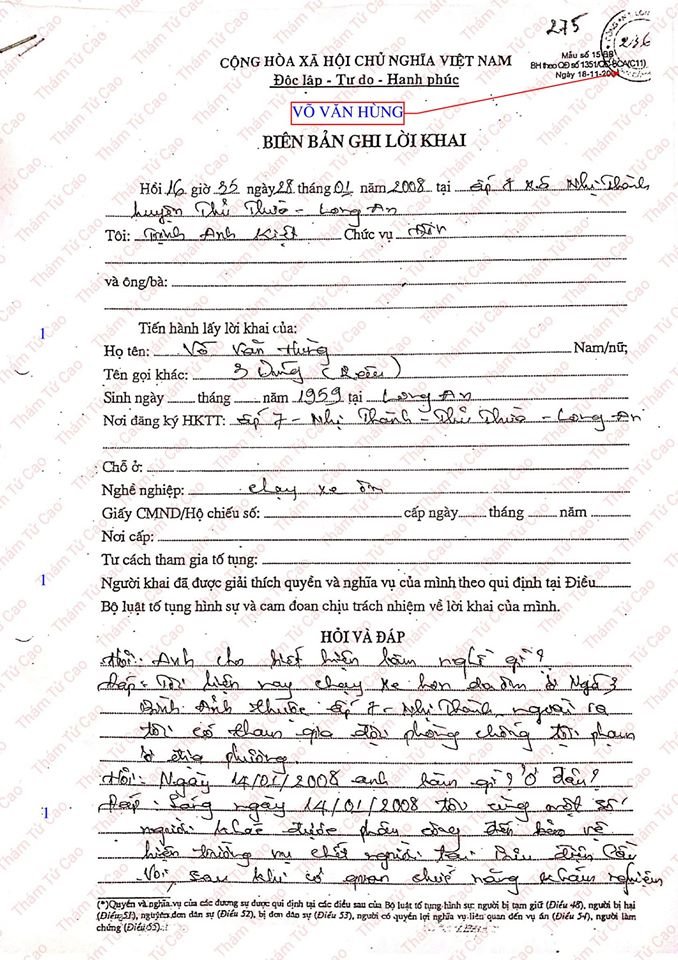 275
236
CỘNG HÒA XÃ HỘI CHỦ NGHĨA VIỆT NAM
Độc lập - Tự do - Hạnh phúc
Mẫu số 15/BB
BH theo QĐ số 1351/QĐ-BCA(C11)
Ngày 18-11-2004
VÕ VĂN HÙNG
BIÊN BẢN GHI LỜI KHAI
Hồi 16 giờ 35 ngày 28 tháng 01 năm 2008 tại ấp 7 xã Nhị Thành
huyện Thủ Thừa - Long An
Tôi: Trịnh Anh Kiệt Chức vụ
và ông/bà:
Tiến hành lấy lời khai của:
1
Họ tên: Võ Văn Hùng Nam/nữ;
Tên gọi khác: 3 Dũng
Sinh ngày tháng năm 1959 tại Long An
Nơi đăng ký HKTT: ấp 7 - Nhị Thành - Thủ Thừa - Long An
Chỗ ở:
Nghề nghiệp: chạy xe ôm
Giấy CMND/Hộ chiếu số: cấp ngày tháng năm
Nơi cấp:
Tư cách tham gia tố tụng:
1
Người khai đã được giải thích quyền và nghĩa vụ của mình theo qui định tại Điều
Bộ luật tố tụng hình sự và cam đoan chịu trách nhiệm về lời khai của mình.
HỎI VÀ ĐÁP
Hỏi: Anh cho biết hiện làm nghề gì?
Đáp: Tôi hiện nay chạy xe hon da ôm ở Ngã 3
Bình Ảnh thuộc ấp 7 - Nhị Thành, ngoài ra
tôi có tham gia đội phòng chống tội phạm
ở địa phương.
Hỏi: Ngày 14/01/2008 anh làm gì? Ở đâu?
1
Đáp: Sáng ngày 14/01/2008 tôi cùng một số
người khác được phân công đến bảo vệ
hiện trường vụ chết người tại Bưu điện Cầu
Voi, sau khi cơ quan chức năng khám nghiệm
(*)Quyền và nghĩa vụ của các đương sự được qui định tại các điều sau của Bộ luật tố tụng hình sự: người bị tạm giữ (Điều 48), người bị hại
(Điều 51), nguyên đơn dân sự (Điều 52), bị đơn dân sự (Điều 53), người có quyền lợi nghĩa vụ liên quan đến vụ án (Điều 54), người làm
chứng (Điều 55).
Thám Tử Cao